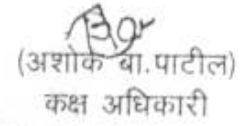 (अशोक बा.पाटील)
कक्ष अधिकारी